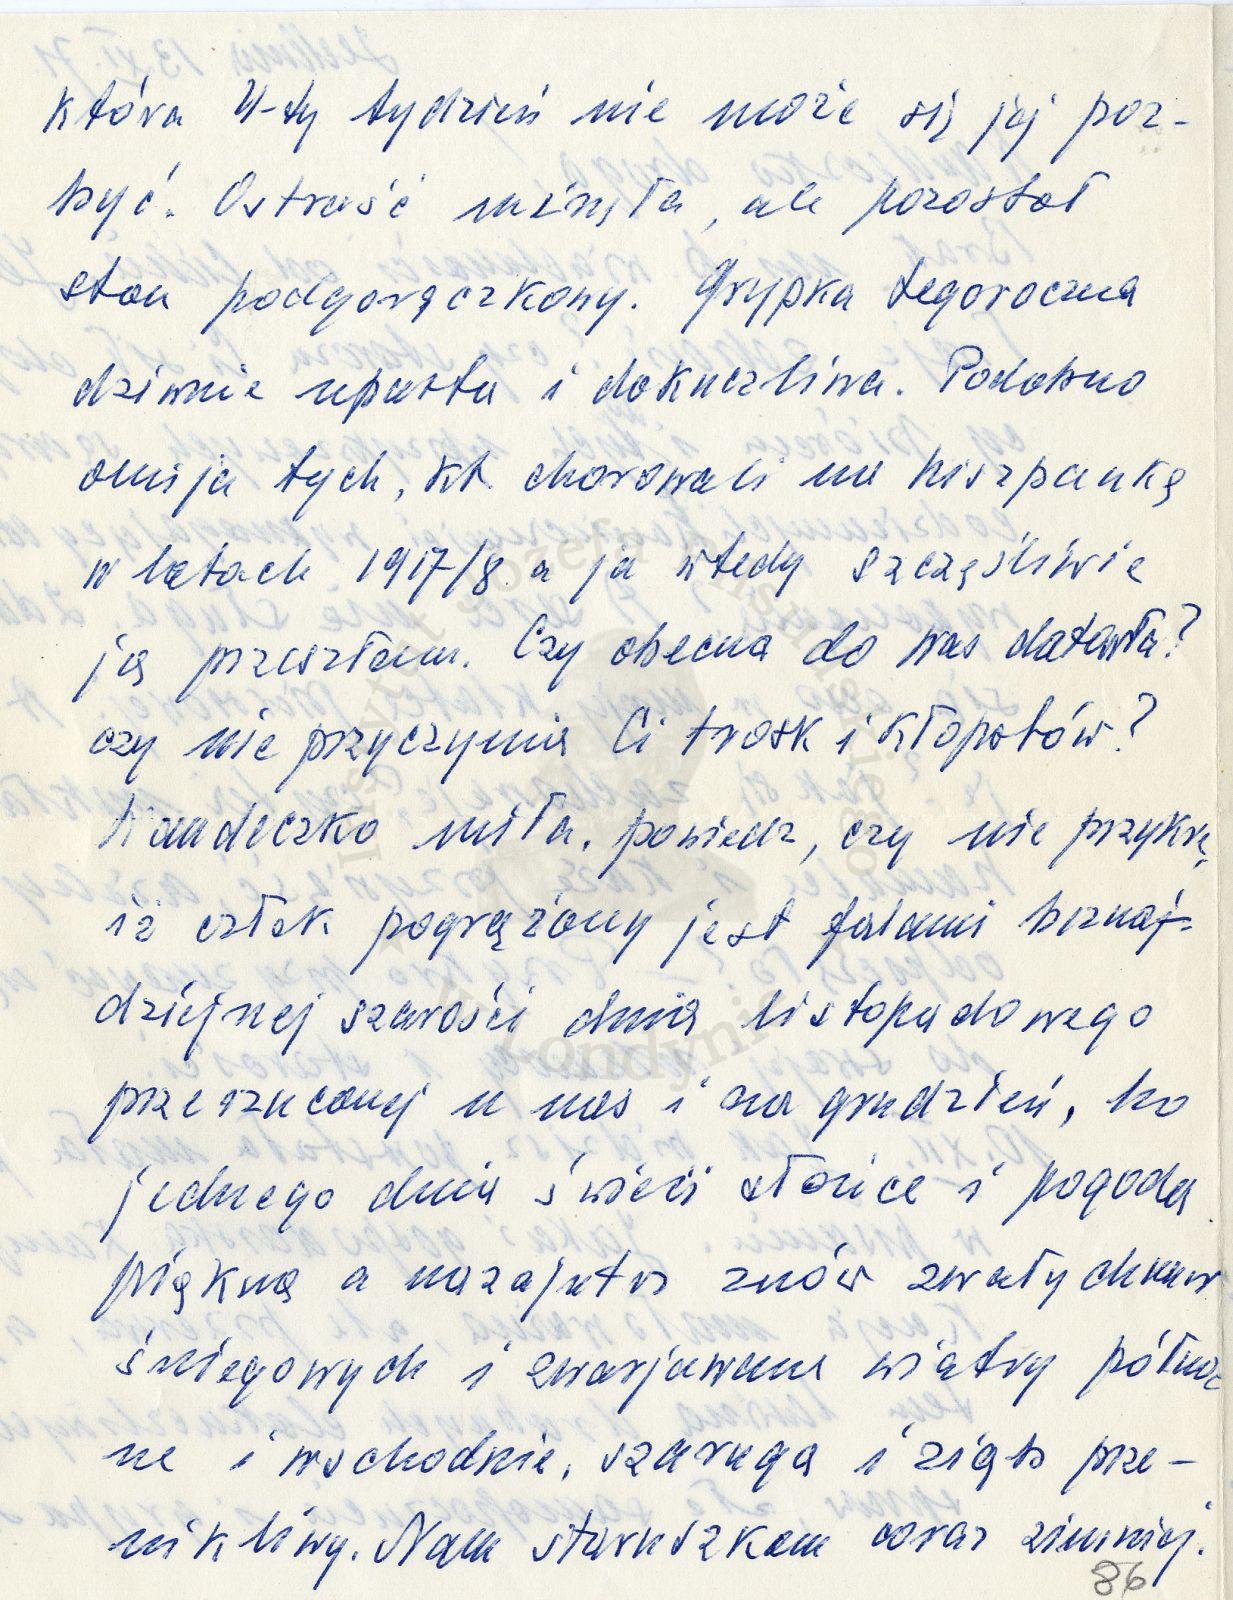 która 4-ty tydzień nie może się jej poz-
być. Ostrość minęła, ale pozostał
stan podgorączkowy. Grypka tegoroczna
dziwnie uparta i dokuczliwa. Podobno
omija tych, kt. chorowali na hiszpankę
w latach 1917/8 a ja wtedy szczęśliwie
ją przeszłam. Czy obecna do was dotarła?
czy nie przyczynia Ci trosk i kłopotów?
Wandeczko miła, powiedz, czy nie przykre,
iż człek pogrążony jest falami beznaj-
dziejnej szarości dnia listopadowego
przerzuconej u nas i na grudzień, bo
jednego dnia świeci słońce i pogoda
piękna a nazajutrz znów zwały chmur
śniegowych i zwarjowane wiatry północ
ne i wschodnie, szaruga i ziąb prze-
nikliwy. Nam staruszkom coraz zimniej.
86
Instytut Józefa Piłsudskiego
w Londynie